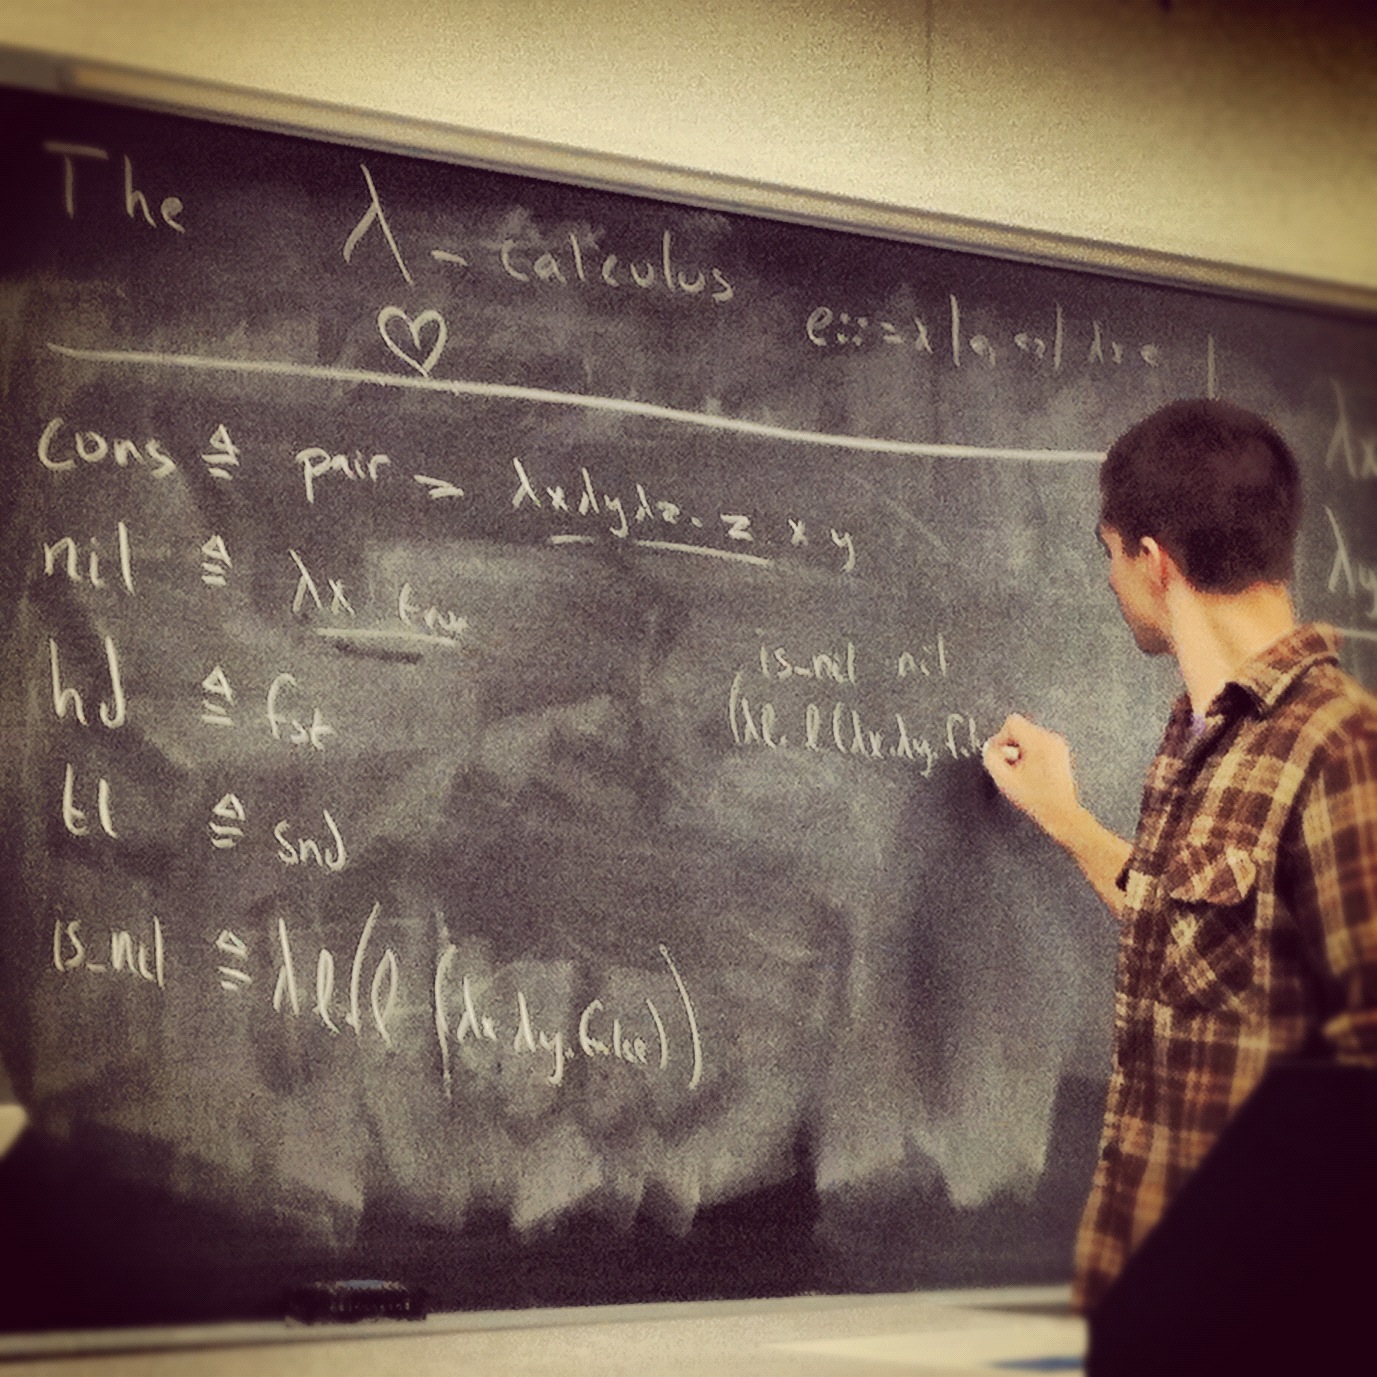 The λ-calculus
♡
e ::= x | e₁ e₂ | λx.e
cons ≜ pair = λxλyλz. z x y
nil ≜ λx true
hd ≜ fst
tl ≜ snd
is_nil ≜ λl.(l (λx λy.false))
is_nil nil
(λl. l (λx.λy.false
λx
λy